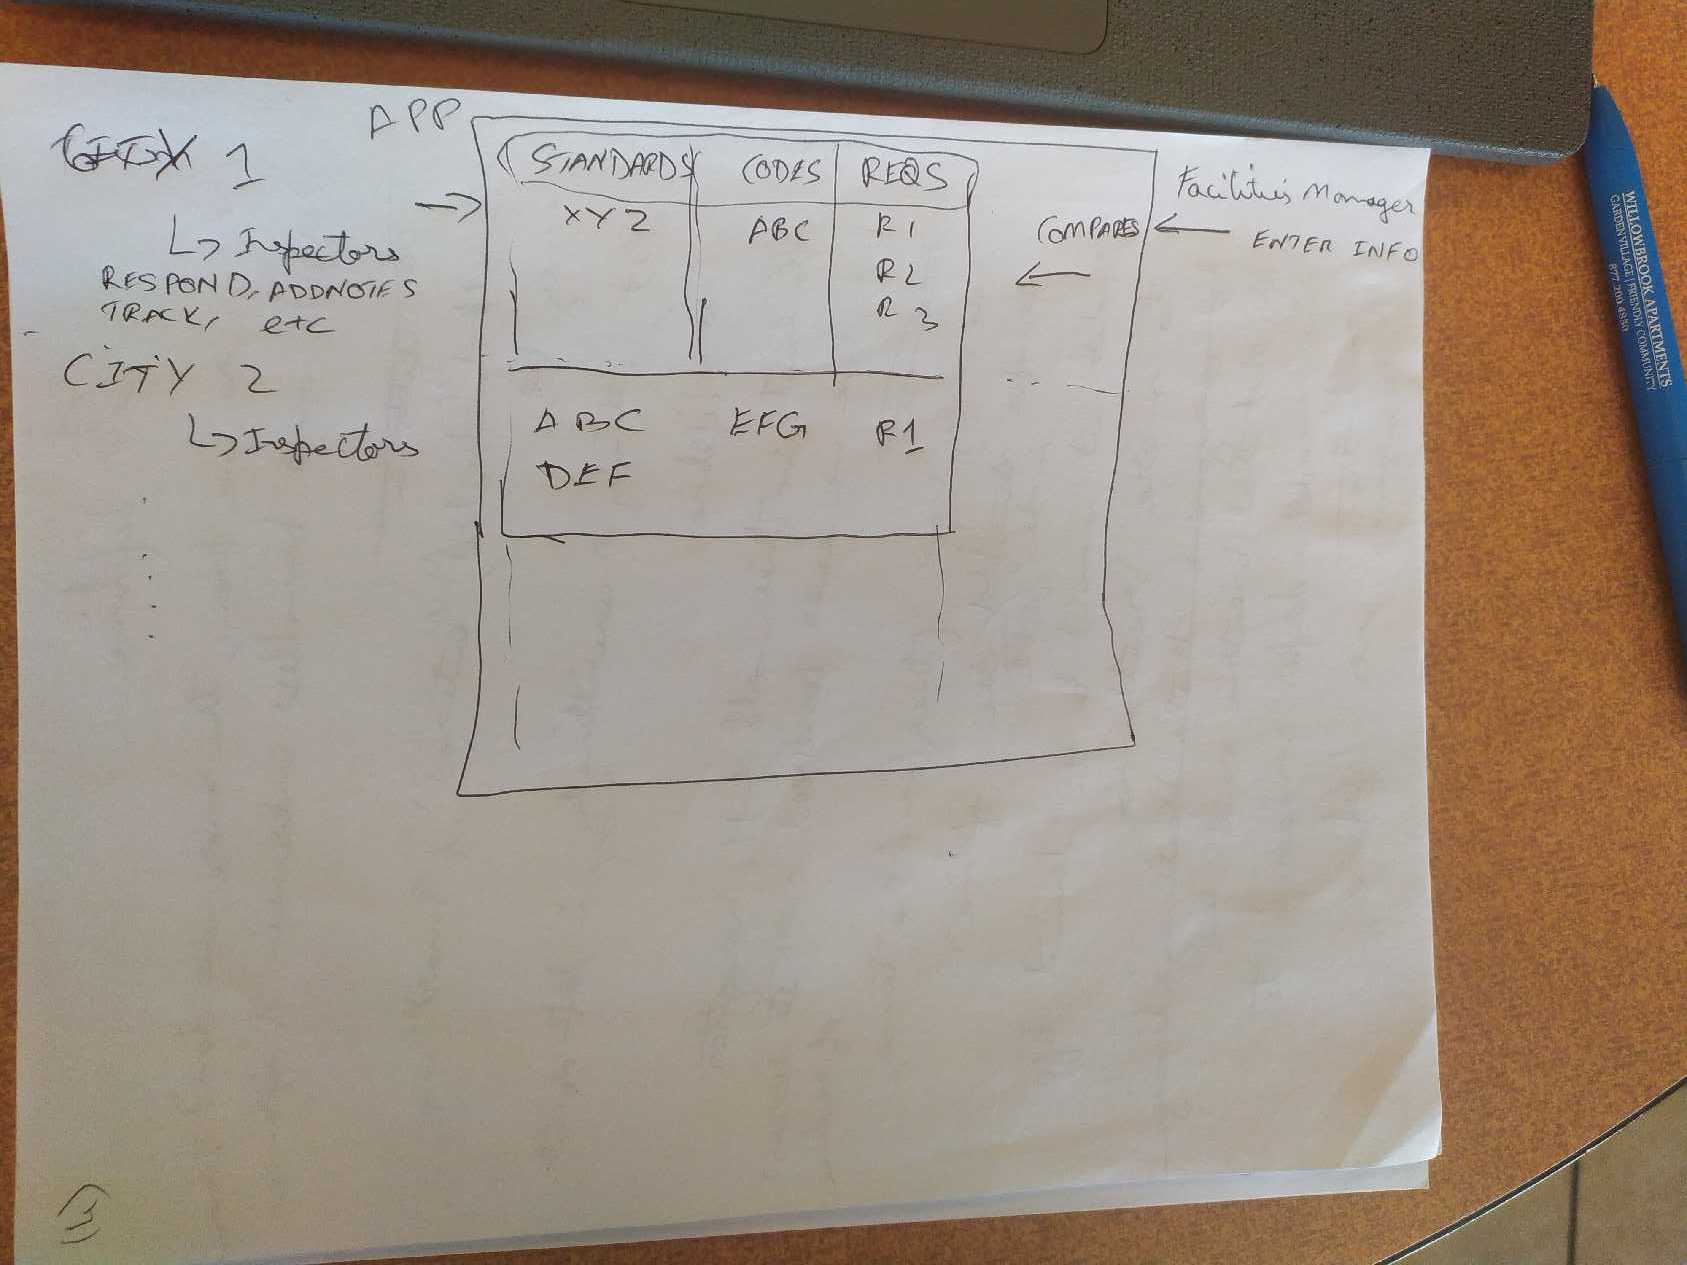 APP
CITY 1
↳ Inspectors
RESPOND, ADD NOTES
TRACK, etc
CITY 2
↳ Inspectors
STANDARDS CODES REQS
XYZ ABC R1
R2
R3
ABC EFG R1
DEF
COMPARES
Facilities Manager
ENTER INFO
3
WILLOWBROOK APARTMENTS
GARDEN VILLAGE | FRIENDLY COMMUNITY
877.200.4830